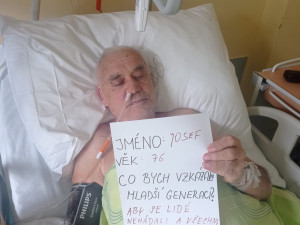 JMÉNO: JOSEF
VĚK: 76
CO BYCH VZKÁZAL
MLADŠÍ GENERACI?
ABY SE LIDÉ
NEHÁDALI A VŠECHNO
PHILIPS